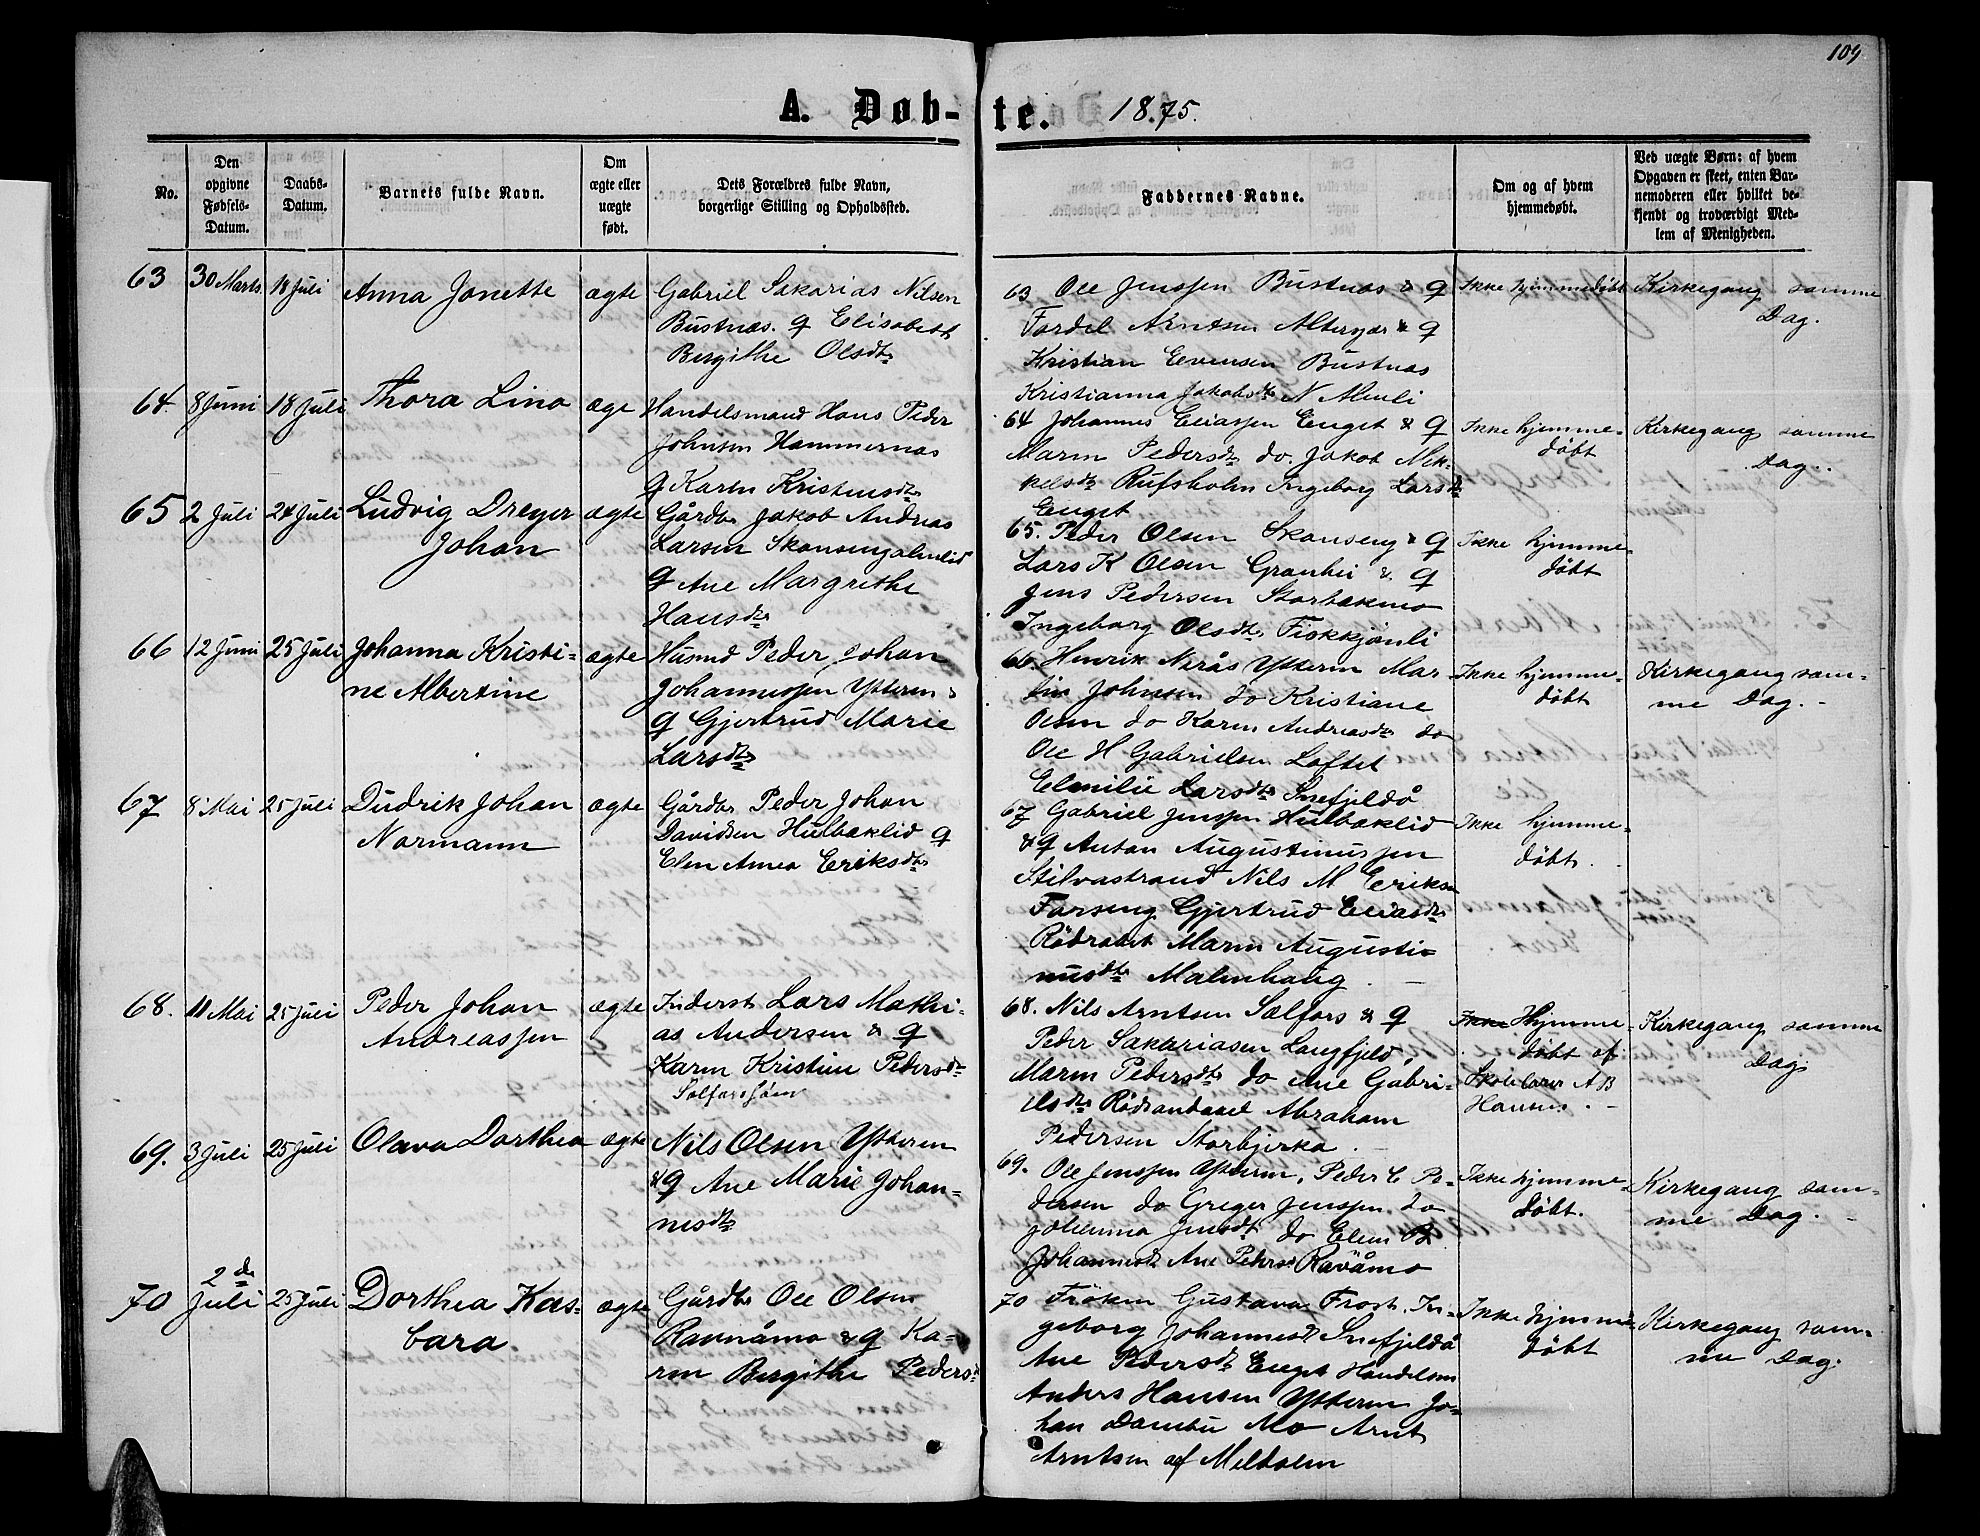 109
A. Døb-te. 1875.
No.
Den opgivne Fødsels-Datum.
Daabs-Datum.
Barnets fulde Navn.
Om ægte eller uægte født.
Dets Forældres fulde Navn, borgerlige Stilling og Opholdssted.
Faddernes Navne.
Om og af hvem hjemmedøbt.
Ved uægte Børn: af hvem Opgaven er skeet, enten Barnemoderen eller hvilket bekjendt og troværdigt Medlem af Menigheden.
63 30 Marts 18 Juli Anna Jonette ægte Gabriel Sakarias Nilsen
Bustnæs. q Elisabeth
Bergithe Olsdtr
63 Ole Jenssen Bustnæs & q
Fordel Arntsen Alternæs & q
Kristian Evensen Bustnæs
Kristianna Jakobsdtr N
Ikke hjemmedøbt Kirkegang samme
Dag.
64. 8 Juni 18 Juli Thora Lina ægte Handelsmand Hans Peder
Johnsen Hammernæs
q Karen Kristensdtr
64 Johannes Eliassen Enget & q
Maren Pedersdtr do. Jakob Mik-
kelsdtr Rufsholm Ingeborg Larsdtr
Enget
Ikke hjemme-
døbt
Kirkegang samme
Dag.
65 2 Juli 24 Juli Ludvig Dreyer
Johan
ægte Gårdbr Jakob Andreas
Larsen
q Ane Margrethe
Hansdtr
65. Peder Olsen Skonseng & q
Lars K Olsen Granhei & q
Jens Pedersen Storbækmo
Ingeborg Olsdtr Fiskkjønli
Ikke hjemme-
døbt
66 12 Juni 25 Juli Johanna Kristi-
ne Albertine
ægte Husmd Peder Johan
Johannessen Ytteren
q Gjertrud Marie
Larsdtr
66. Henrik Nerås Ytteren Mar-
tin Johnsen do Kristiane
Olsen do Karen Andreasdtr do
Ole H Gabrielsen Loftet
Elmilie Larsdtr Snefjeldå
Ikke hjemme-
døbt
Kirkegang sam-
me Dag.
67 8 Mai 25 Juli Didrik Johan
Normann
ægte Gårdbr Peder Johan
Davidsen Hulbæklid q
Elen Anna Eriksdtr
67 Gabriel Jenssen Hulbæklid
& q Anton Augustinussen
Stilvastrand Nils M Eriksen
Forseng Gjertrud Eliasdtr
Rödraset Maren Augusti-
nusdtr Malmhaug
Ikke hjemme-
døbt.
68. 11 Mai 25 Juli Peder Johan
Andreassen
ægte Inderst Lars Mathi-
as Andersen & q
Karen Kristine Pedersdtr
68. Nils Arntsen Selfors & q
Peder Sakariasen Langfjeld
Maren Pedersdtr do Ane Gabri-
elsdtr Abraham
Pedersen Storbjerka
Ikke Hjemme-
døbt af
Skolelærer A B
Hansen.
Kirkegang samme
Dag
69. 3 Juli 25 Juli Olava Dorthea ægte Nils Olsen Ytteren
& q Ane Marie Johan-
nesdtr
69. Ole Jenssen Ytteren, Peder C Pe-
dersen do Greger Jenssen do
Johanna Jensdtr do Elen B
Johannesdtr Ane Pedersdtr Råvåmo
Ikke hjemme-
døbt.
Kirkegang sam-
me Dag.
70 2de
Juli 25 Juli Dorthea Kas-
bara.
ægte Gårdbr Ole Olsen
Ravnåmo & q Ka-
ren Bergithe Pedersdtr
70 Frøken Gustava Frost. In-
geborg Johannesdtr Snefjeldå
Ane Pedersdtr Enget Handelsm
Anders Hansen Ytteren Jo-
han Mo Arnt
Arntsen af Meldalen
Ikke hjemme-
døbt
Kirkegang sam-
me Dag.